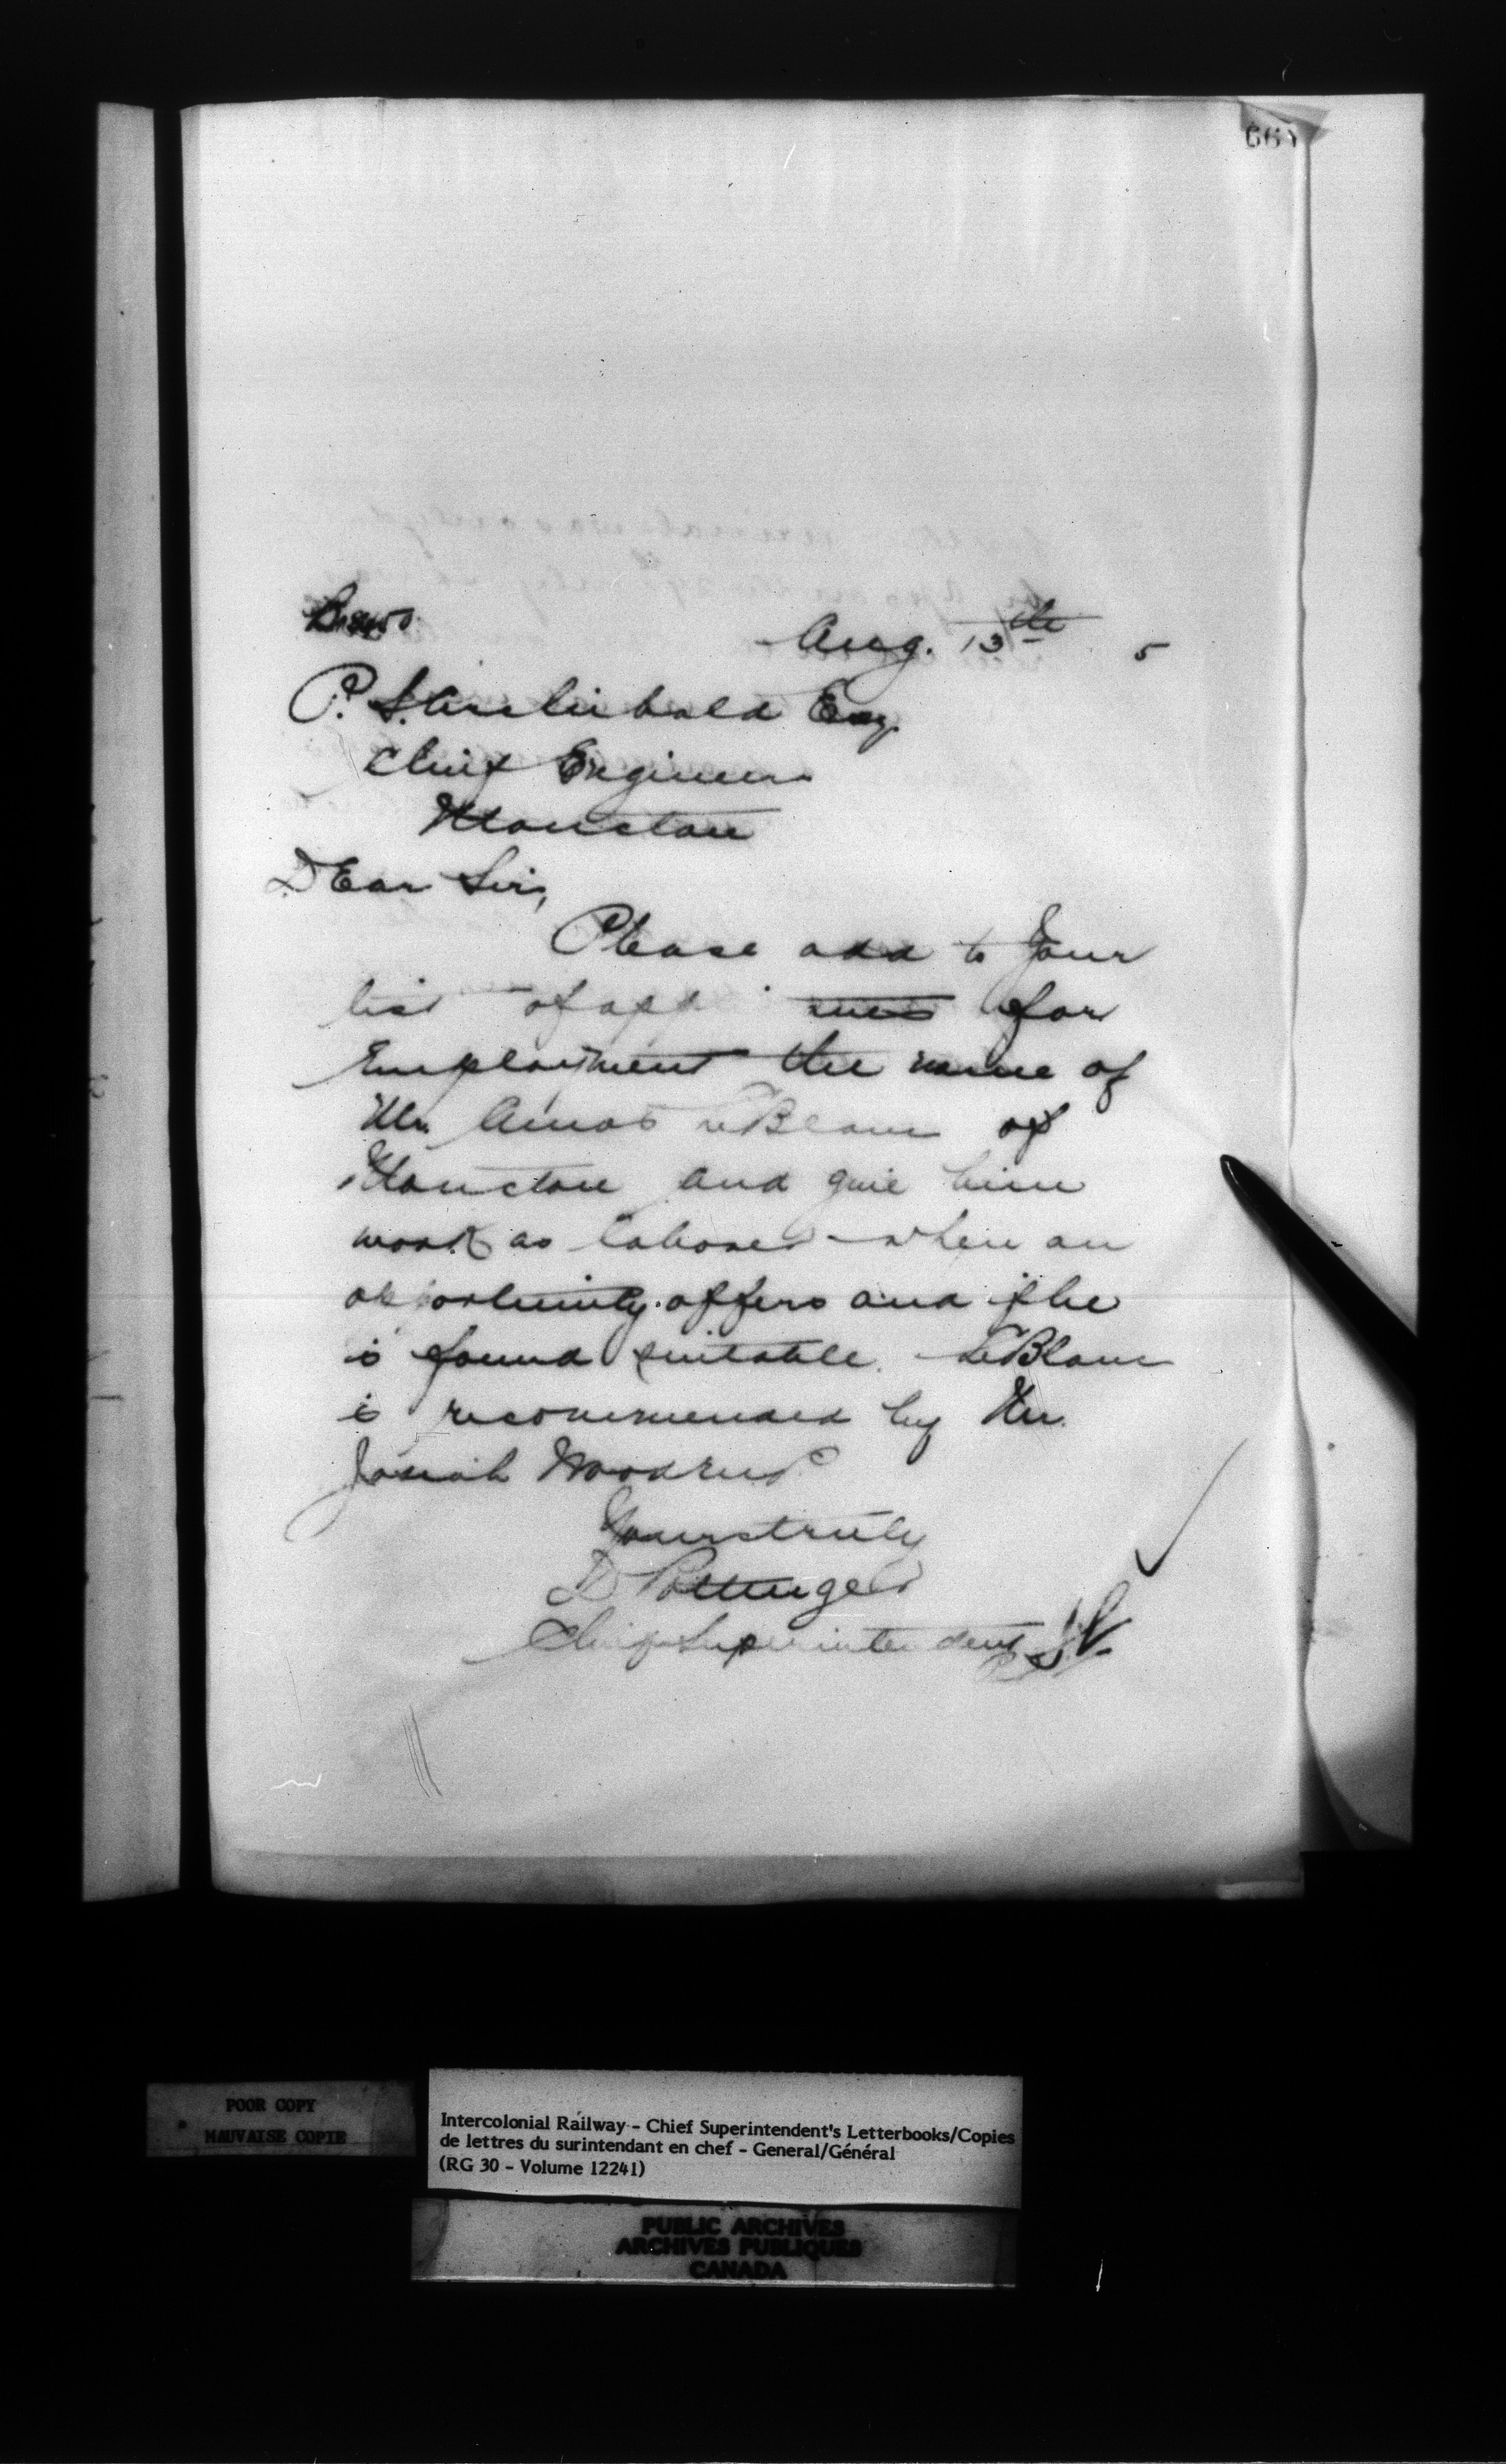 Aug. 13th 5
P. S. Archibald Esq
Chief Engineer
Moncton
Dear Sir,
Please add to your
list of app for
Employment the name of
Mr. Amos LeBlanc of
Moncton and give him
work as laborer when an
opportunity offers and if he
is found suitable. LeBlanc
is recommended by Mr.
Josiah Wood
Yours truly
D Pottinger
Chief Superintendent
POOR COPY
MAUVAISE COPIE
Intercolonial Railway - Chief Superintendent's Letterbooks/Copies
de lettres du surintendant en chef - General/Général
(RG 30 - Volume 12241)
PUBLIC ARCHIVES
ARCHIVES PUBLIQUES
CANADA